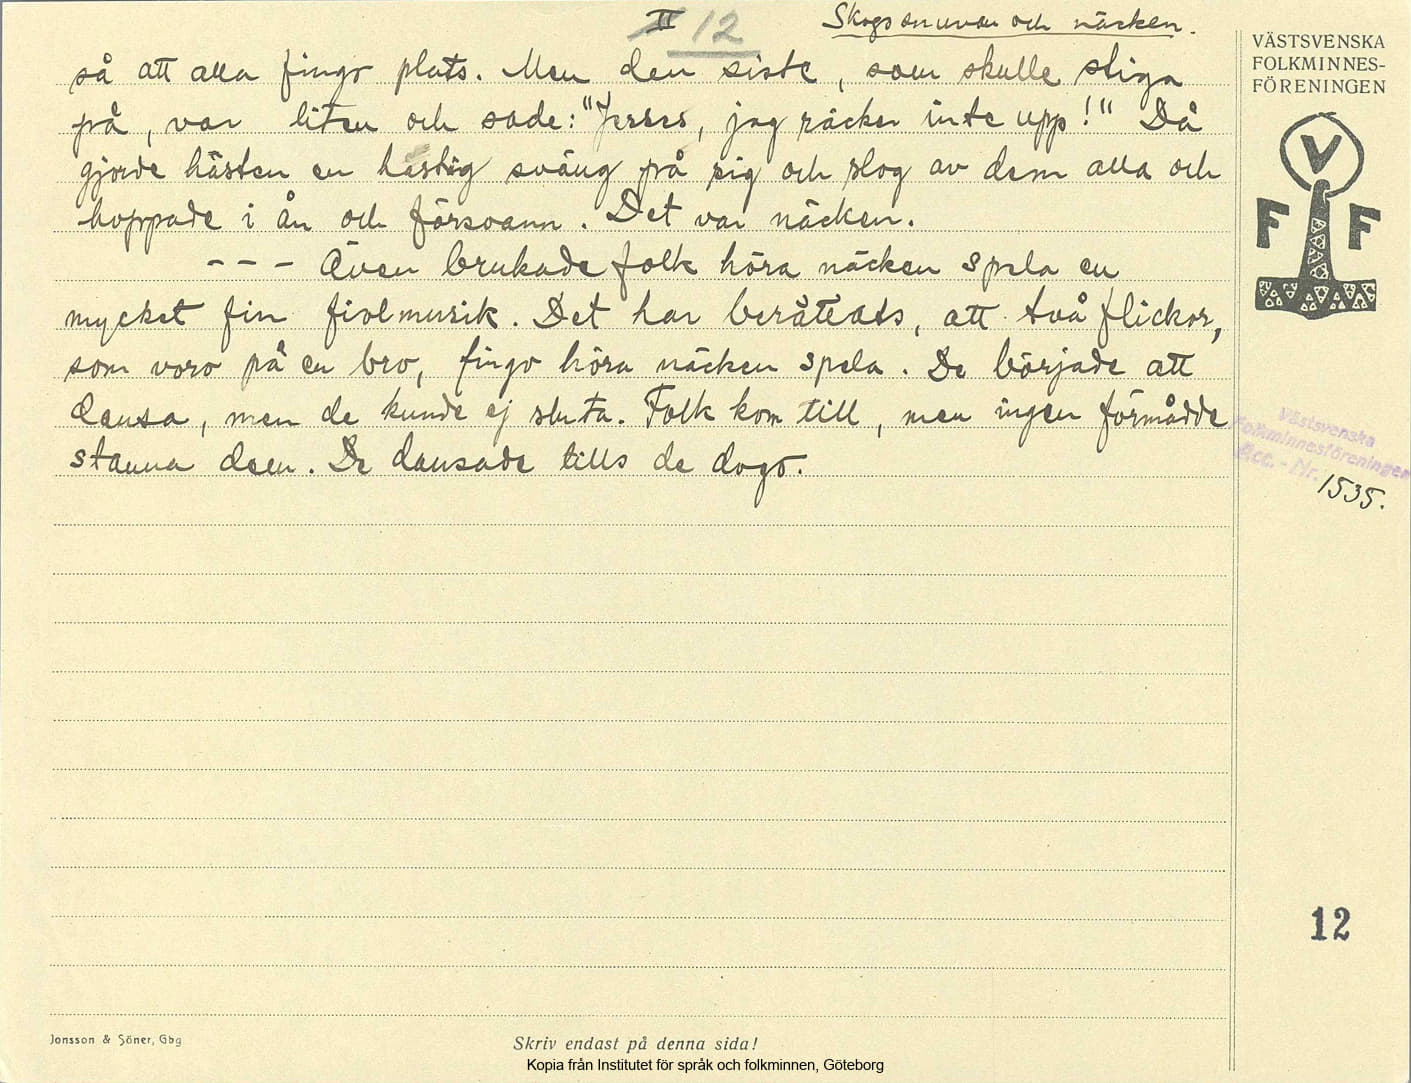 II 12 Skogssnuvan och näcken.
så att alla fingo plats. Men den siste, som skulle stiga
på, var liten och sade: "Jesses, jag räcker inte upp!" Då
gjorde hästen en hastig sväng på sig och slog av dem alla och
hoppade i ån och försvann. Det var näcken.
--- Även brukade folk höra näcken spela en
mycket fin fiolmusik. Det har berättats, att två flickor,
som voro på en bro, fingo höra näcken spela. De började att
dansa, men de kunde ej sluta. Folk kom till, men ingen förmådde
stanna dem. De dansade tills de dogo.
VÄSTSVENSKA
FOLKMINNES-
FÖRENINGEN
V
F F
Västsvenska
Folkminnesföreningen
Acc.-Nr. 1535.
12
Jonsson & Söner, Gbg
Skriv endast på denna sida!
Kopia från Institutet för språk och folkminnen, Göteborg